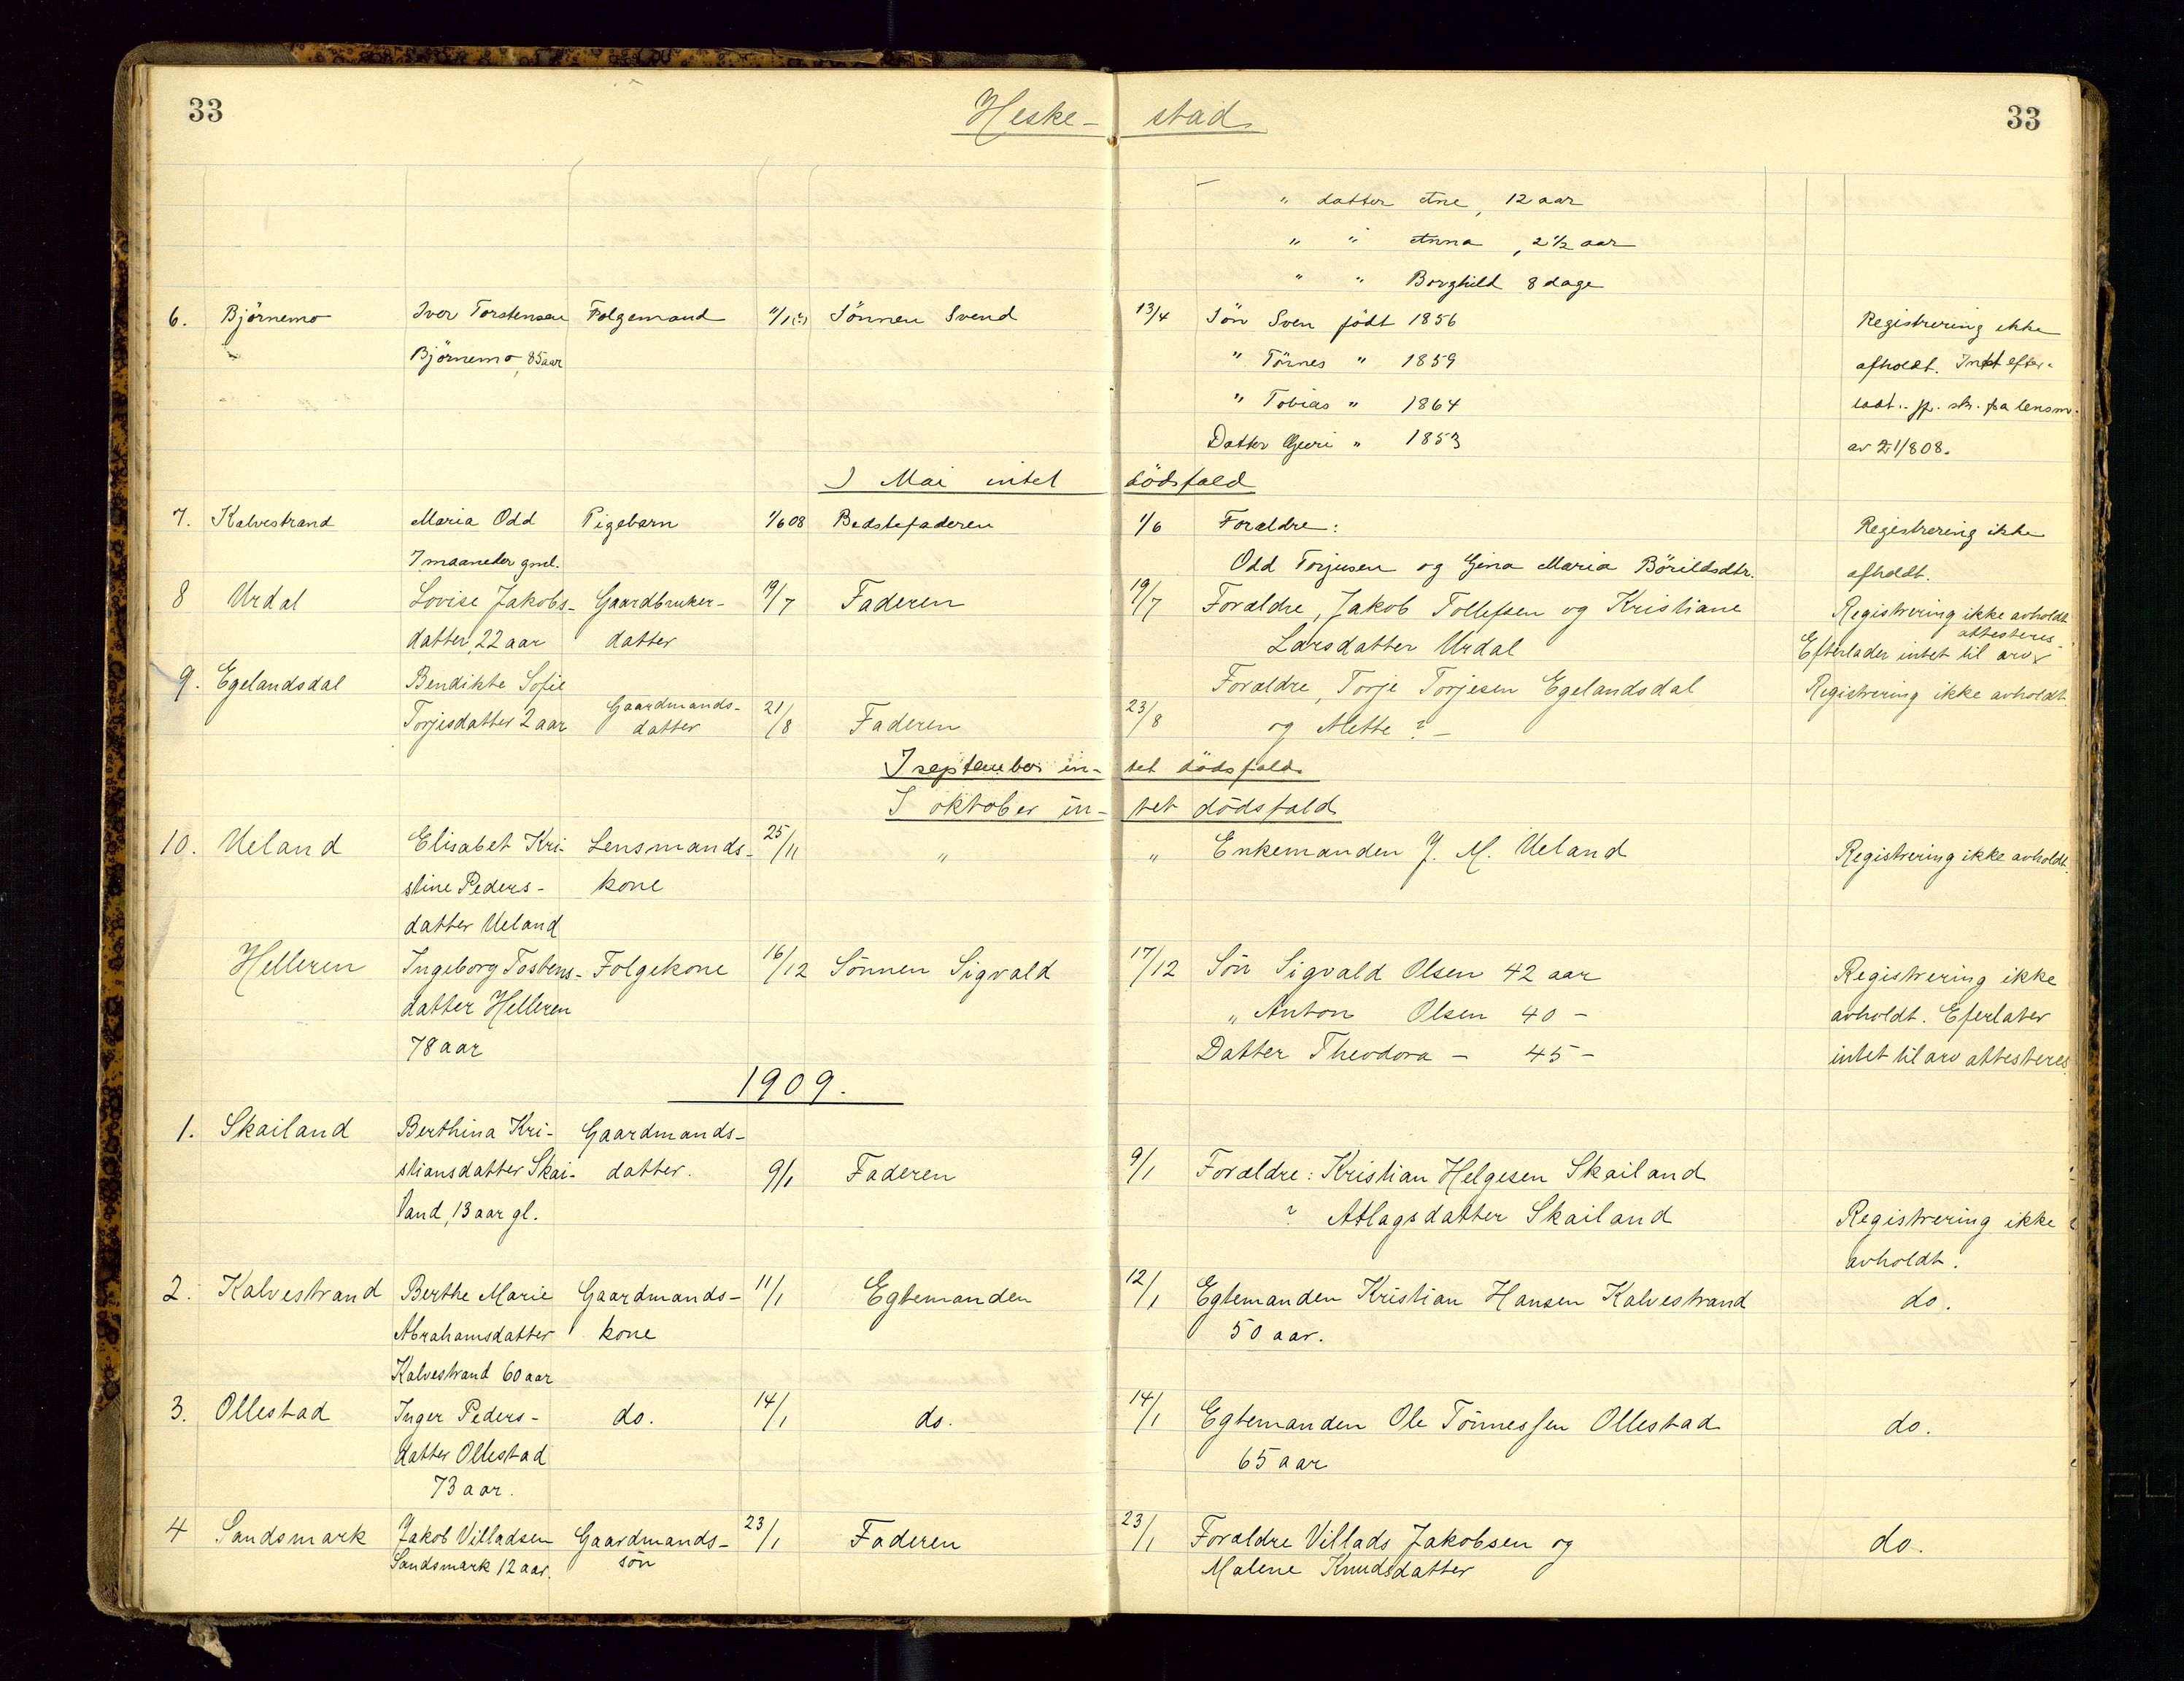 33 Heske- stad 33
" datter Ane, 12 aar
" " Anna, 2 1/2 aar
" " Borghild 8 dage
6. Björnemo Iver Torstensen Folgemand Sönnen Svend 13/4 Sön Sven födt 1856 Registrering ikke
Björnemo, 85 aar " Tönnes " 1859 afholdt. Intet efter-
" Tobias " 1864 ladt.
Datter Guri " 1853 av 21/8 08.
I Mai intet dödsfald
7. Kalvestrand Maria Odd Pigebarn 1/6 08 Bedstefaderen 1/6 Foraldre: Registrering ikke
7 maaneder gml. Odd Torjusen og Gina Maria Börildsdtr. afholdt.
8 Urdal Lovise Jakobs- Gaardbruker- 19/7 Faderen 19/7 Foraldre, Jakob Tollefsen og Kristiane Registrering ikke avholdt
datter, 22 aar datter Larsdatter Urdal Efterlader intet til arv attesteres
9. Egelandsdal Bendikte Sofie Foraldre, Torje Torjesen Egelandsdal Registrering ikke avholdt
Torjesdatter 2 aar Gaardmands- datter 21/8 Faderen 23/8 og Mette ? -
I september in- tet dödsfald
I oktober in- tet dödsfald
10. Ueland Elisabet Kri- Lensmands- 25/11 " " Enkemanden J. M. Ueland Registrering ikke avholdt.
stine Peders- kone
datter Ueland
Helleren Ingeborg Tostens- Folgekone 16/12 Sönnen Sigvald 17/12 Sön Sigvald Olsen 42 aar Registrering ikke
datter Helleren " Anton Olsen 40 - avholdt. Eferlater
78 aar Datter Theodora - 45 - intet til arv attesteres.
1909.
1. Skailand Berthina Kri- Gaardmands-
stiansdatter Skai- datter. 9/1 Faderen 9/1 Foraldre: Kristian Helgesen Skailand
land, 13 aar gl. ? Atlagsdatter Skailand Registrering ikke
avholdt.
2. Kalvestrand Berthe Marie Gaardmands- 11/1 Egtemanden 12/1 Egtemanden Kristian Hansen Kalvestrand do.
Abrahamsdatter kone 50 aar.
Kalvestrand 60 aar
3. Ollestad Inger Peders- do. 14/1 do. 14/1 Egtemanden Ole Tönnessen Ollestad do.
datter Ollestad 65 aar
73 aar.
4 Sandsmark Jakob Villadsen Gaardmands- 23/1 Faderen 23/1 Foraldre Villads Jakobsen og do.
Sandsmark 12 aar. sön Malene Knudsdatter